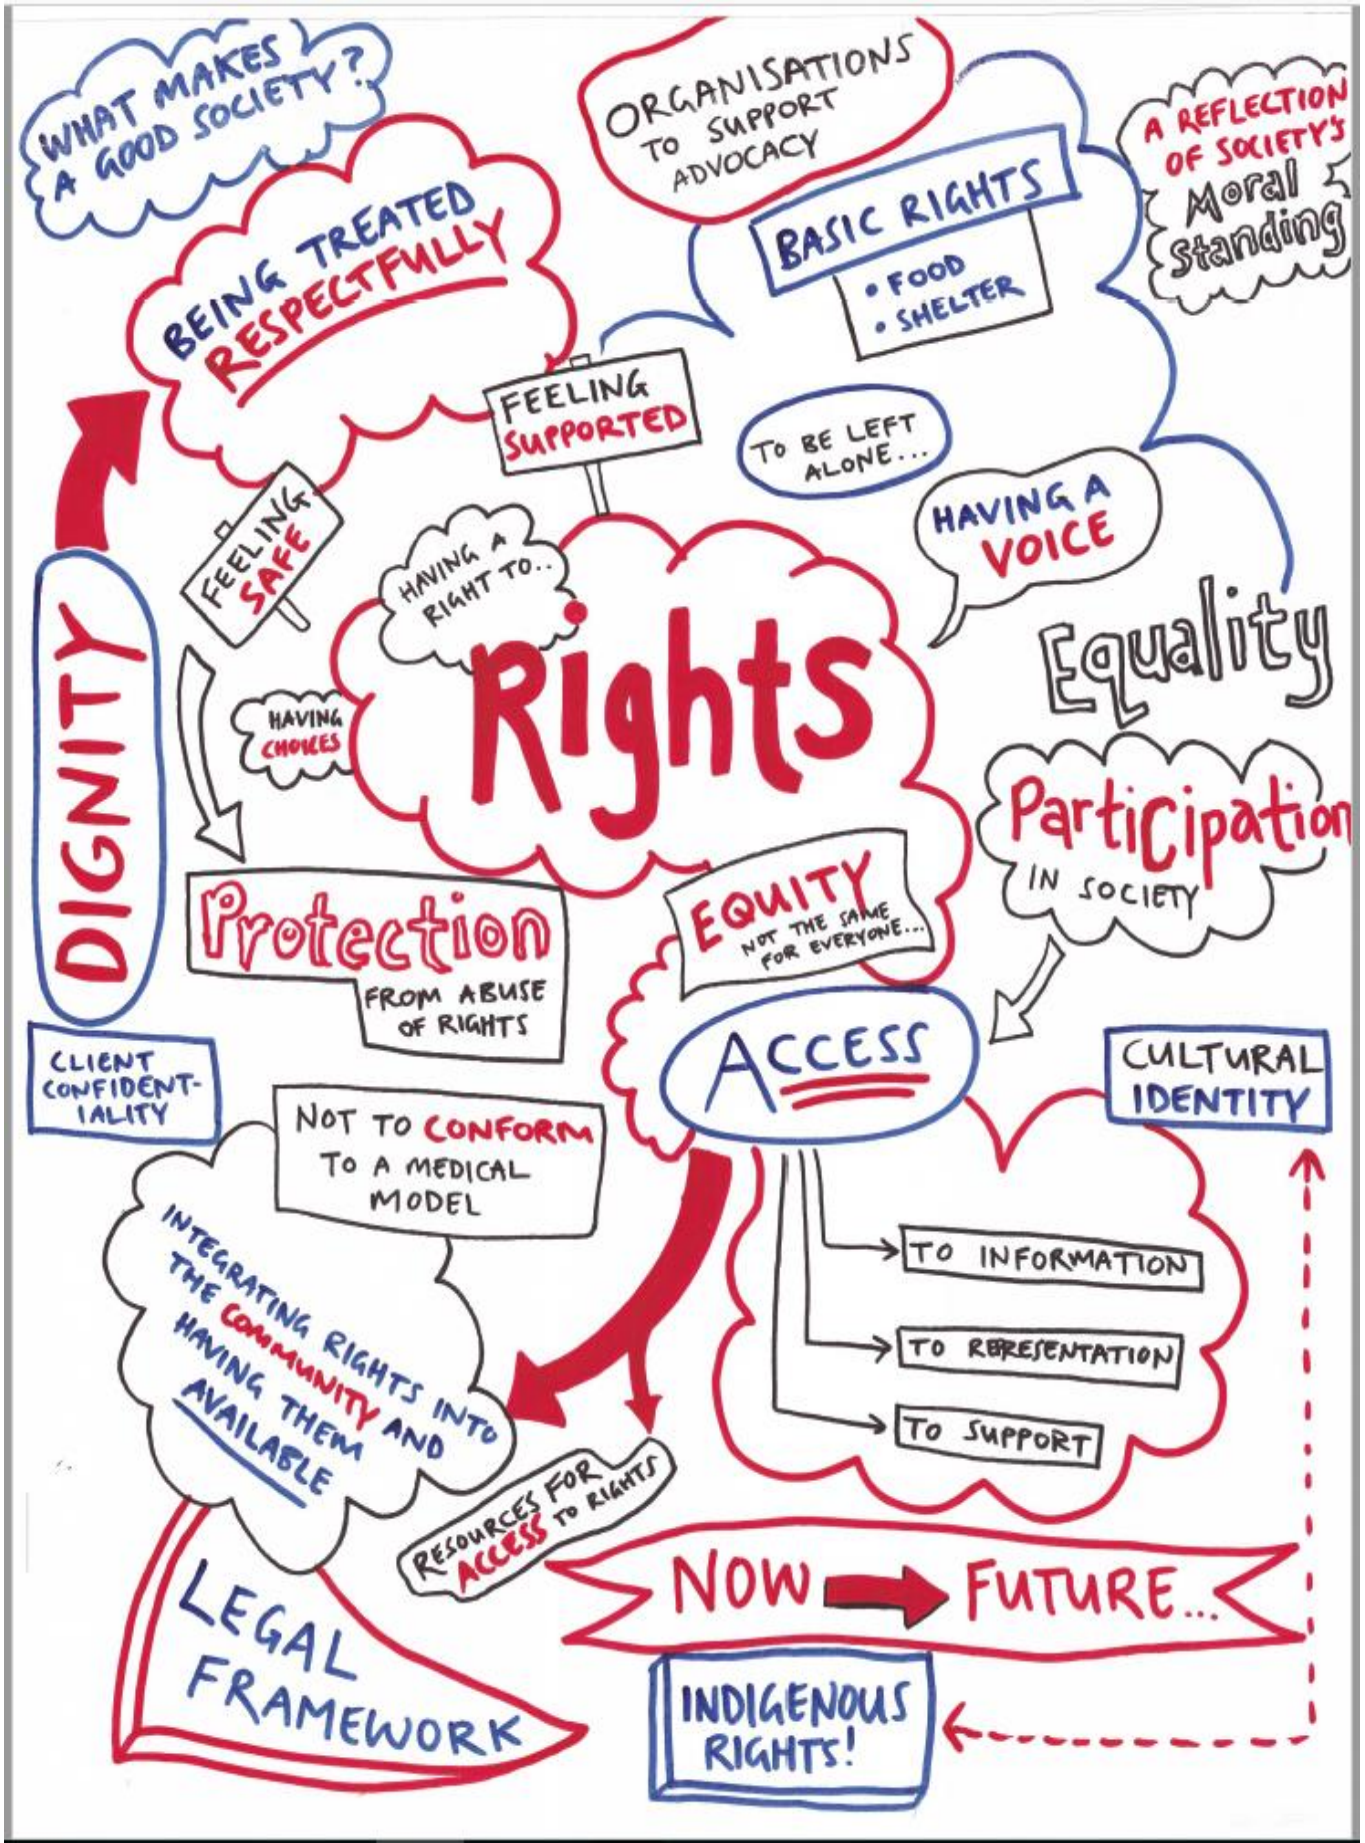 WHAT MAKES
A GOOD SOCIETY?
ORGANISATIONS
TO SUPPORT
ADVOCACY
A REFLECTION
OF SOCIETY'S
Moral
Standing
BEING TREATED
RESPECTFULLY
BASIC RIGHTS
• FOOD
• SHELTER
FEELING
SUPPORTED
TO BE LEFT
ALONE...
FEELING
SAFE
HAVING A
RIGHT TO..
HAVING A
VOICE
Rights
Equality
DIGNITY
HAVING
CHOICES
Participation
IN SOCIETY
Protection
FROM ABUSE
OF RIGHTS
EQUITY
NOT THE SAME
FOR EVERYONE...
ACCESS
CLIENT
CONFIDENT-
IALITY
CULTURAL
IDENTITY
NOT TO CONFORM
TO A MEDICAL
MODEL
INTEGRATING RIGHTS INTO
THE COMMUNITY AND
HAVING THEM
AVAILABLE
TO INFORMATION
TO REPRESENTATION
TO SUPPORT
RESOURCES FOR
ACCESS TO RIGHTS
NOW FUTURE...
LEGAL
FRAMEWORK
INDIGENOUS
RIGHTS!